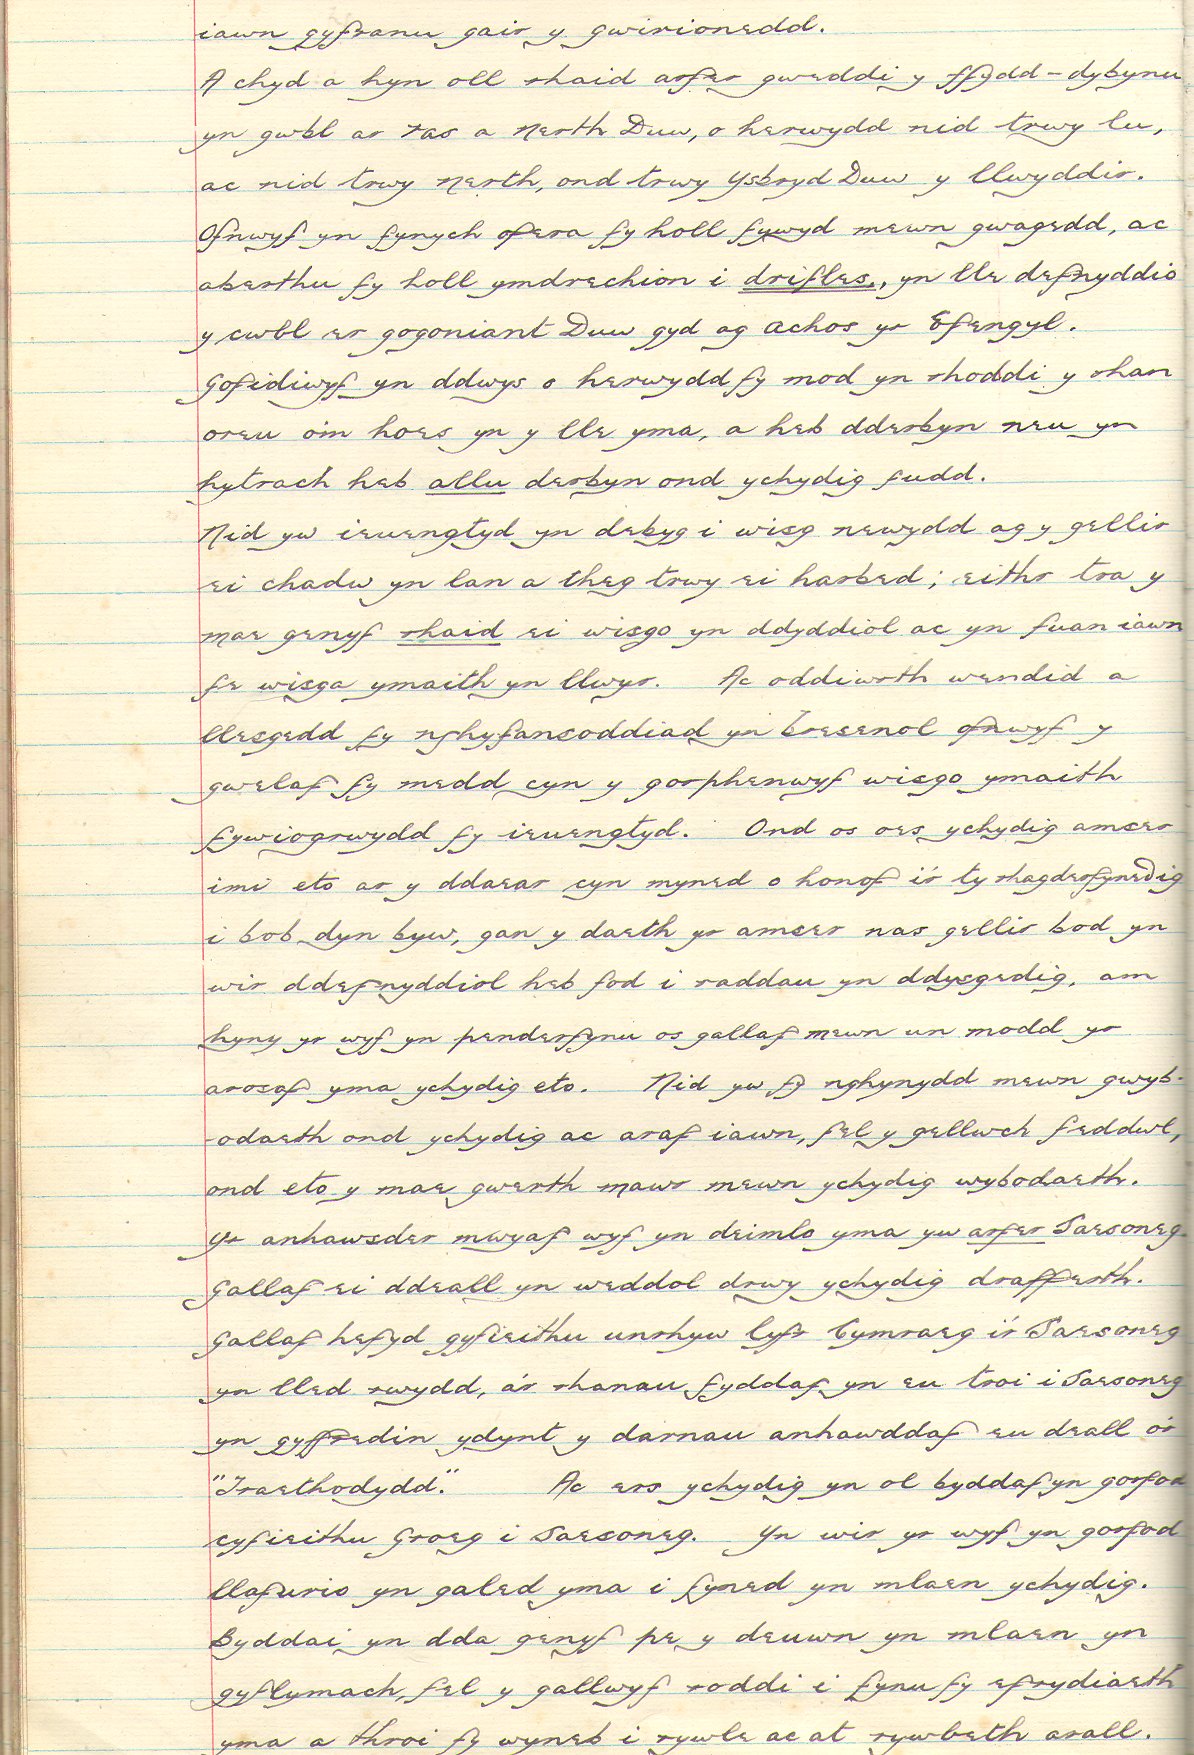 iawn gyfranu gair y gwirionedd.
A chyd a hyn oll rhaid arfer gweddi y ffydd – dybynu
yn gwbl ar ras a Nerth Duw, o herwydd nid trwy lu,
ac nid trwy Nerth, ond trwy Ysbryd Duw y llwyddir.
Ofnwyf yn fynych ofera fy holl fywyd mewn gwagedd, ac
aberthu fy holl ymdrechion i drifles., yn lle defnyddio
y cwbl er gogoniant Duw gyd ag achos yr Efengyl.
Gofidiwyf yn ddwys o herwydd fy mod yn rhoddi y rhan
oreu o'm hoes yn y lle yma, a heb dderbyn neu yn
hytrach heb allu derbyn ond ychydig fudd.
Nid yw ieuengtyd yn debyg i wisg newydd ag y gellir
ei chadw yn lan a theg trwy ei harbed; eithr tra y
mae genyf rhaid ei wisgo yn ddyddiol ac yn fuan iawn
fe wisga ymaith yn llwyr. Ac oddiwrth wendid a
llesgedd fy nghyfansoddiad yn bresenol ofnwyf y
gwelaf fy medd cyn y gorphenwyf wisgo ymaith
fywiogrwydd fy ieuengtyd. Ond os oes ychydig amser
imi eto ar y ddaear cyn myned o honof i'r ty rhagderfynedig
i bob dyn byw, gan y daeth yr amser nas gellir bod yn
wir ddefnyddiol heb fod i raddau yn ddysgedig, am
hyny yr wyf yn penderfynu os gallaf mewn un modd yr
arosaf yma ychydig eto. Nid yw fy nghynydd mewn gwyb-
-odaeth ond ychydig ac araf iawn, fel y gellwch feddwl,
ond eto y mae gwerth mawr mewn ychydig wybodaeth.
Yr anhawsder mwyaf wyf yn deimlo yma yw arfer Saesoneg
Gallaf ei ddeall yn weddol drwy ychydig drafferth.
Gallaf hefyd gyfieithu unrhyw lyfr Cymraeg i'r Saesoneg
yn lled rwydd, a'r rhanau fyddaf yn eu troi i Saesoneg
yn gyffredin ydynt y darnau anhawddaf eu deall o'r
"Traethodydd." Ac ers ychydig yn ol byddaf yn gorfod
cyfieithu Groeg i Saesoneg. Yn wir yr wyf yn gorfod
llafurio yn galed yma i fyned yn mlaen ychydig.
Byddai yn dda genyf pe y deuwn yn mlaen yn
gyflymach, fel y gallwyf roddi i fynu fy efrydiaeth
yma a throi fy wyneb i rywle ac at rywbeth arall.